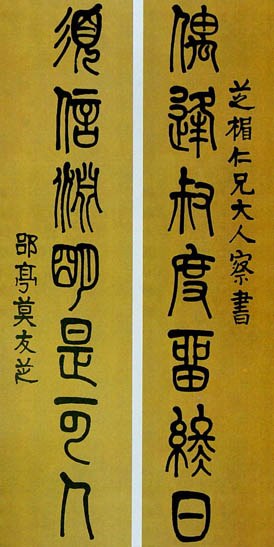 芝楣仁兄大人察書
偶逢叔度留終日
須信淵明是可人
郘亭莫友芝